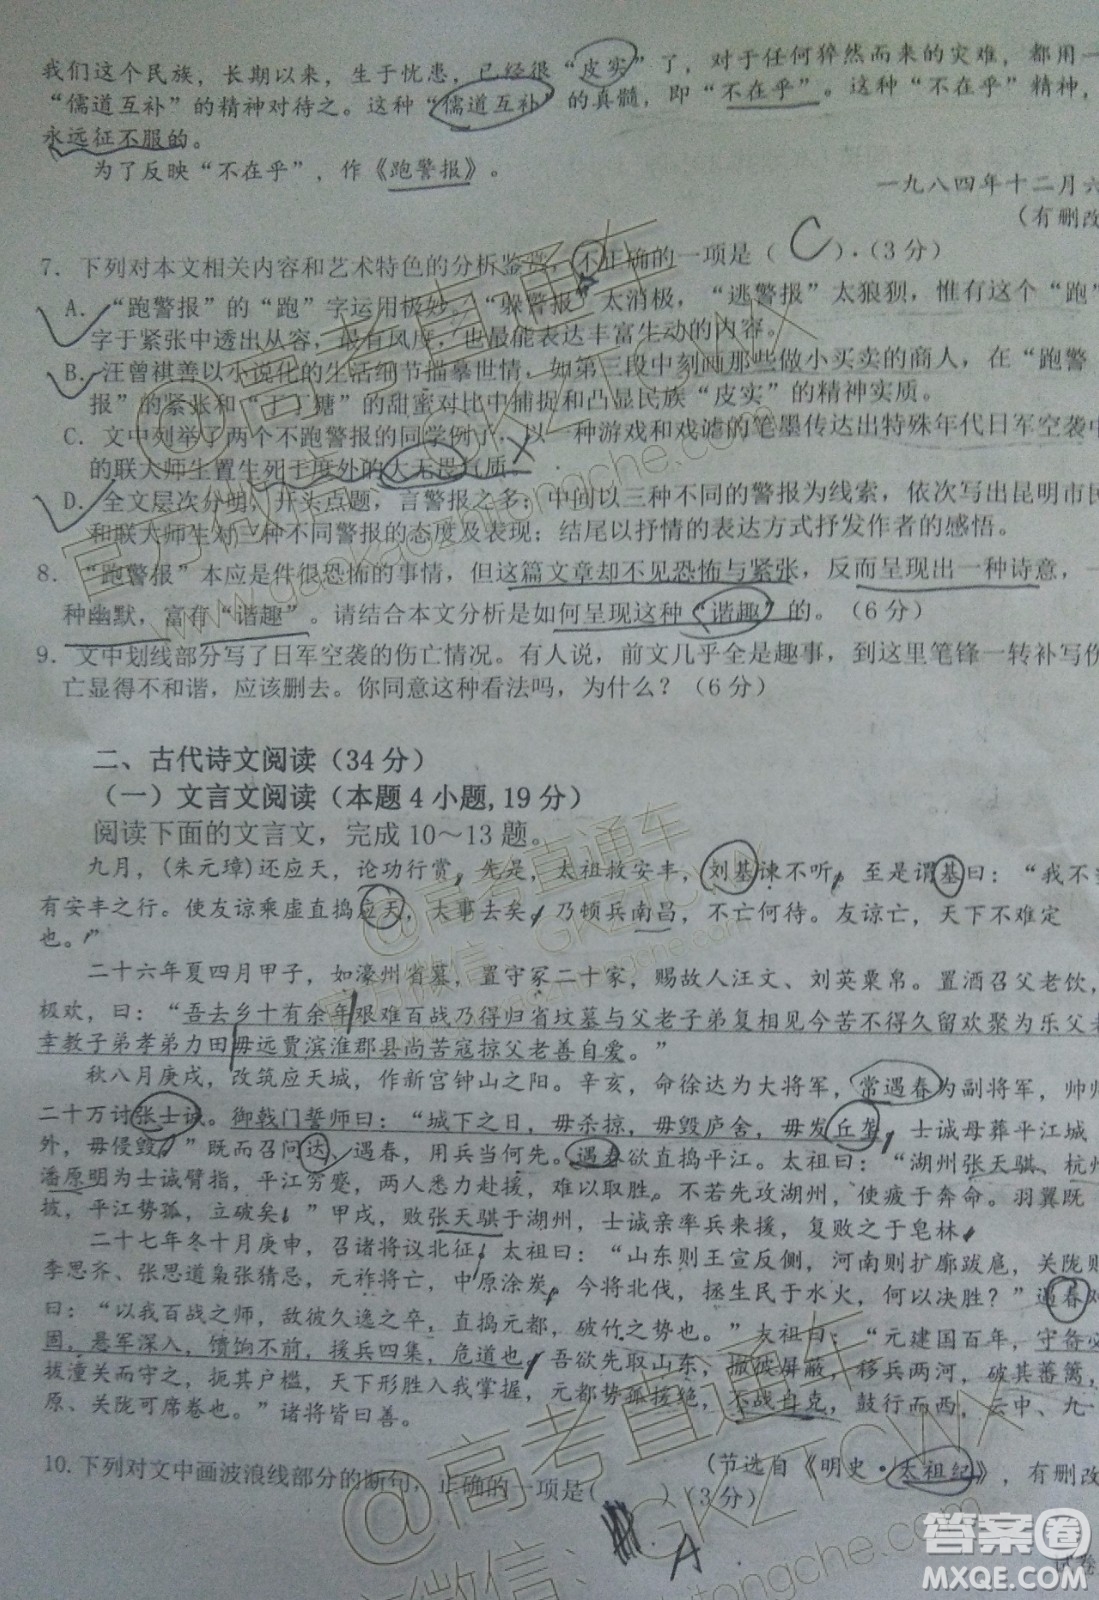 我们这个民族，长期以来，生于忧患，已经很“皮实”了，对于任何猝然而来的灾难，都用一
“儒道互补”的精神对待之。这种“儒道互补”的真髓，即“不在乎”。这种“不在乎”精神，
永远征不服的。
为了反映“不在乎”，作《跑警报》。
一九八四年十二月六
（有删改
7．下列对本文相关内容和艺术特色的分析鉴赏，不正确的一项是（ C ）（3分）
A．“跑警报”的“跑”字运用极妙。“躲警报”太消极，“逃警报”太狼狈，惟有这个“跑”
字于紧张中透出从容，最有风度，也最能表达丰富生动的内容。
B．汪曾祺善以小说化的生活细节描摹世情，如第三段中刻画那些做小买卖的商人，在“跑警
报”的紧张和“丁丁糖”的甜蜜对比中捕捉和凸显民族“皮实”的精神实质。
C．文中列举了两个不跑警报的同学例子，以一种游戏和戏谑的笔墨传达出特殊年代日军空袭中
的联大师生置生死于度外的大无畏气质。
D．全文层次分明，开头点题，言警报之多；中间以三种不同的警报为线索，依次写出昆明市民
和联大师生对三种不同警报的态度及表现；结尾以抒情的表达方式抒发作者的感悟。
8．“跑警报”本应是件很恐怖的事情，但这篇文章却不见恐怖与紧张，反而呈现出一种诗意，一
种幽默，富有“谐趣”。请结合本文分析是如何呈现这种“谐趣”的。（6分）
9．文中划线部分写了日军空袭的伤亡情况。有人说，前文几乎全是趣事，到这里笔锋一转补写伤
亡显得不和谐，应该删去。你同意这种看法吗，为什么？（6分）
二、古代诗文阅读（34分）
（一）文言文阅读（本题4小题，19分）
阅读下面的文言文，完成10～13题。
九月，（朱元璋）还应天，论功行赏，先是，太祖救安丰，刘基谏不听，至是谓基曰：“我不
有安丰之行。使友谅乘虚直捣应天，大事去矣，乃顿兵南昌，不亡何待。友谅亡，天下不难定
也。”
二十六年夏四月甲子，如濠州省墓，置守冢二十家，赐故人汪文、刘英粟帛。置酒召父老饮，
极欢，曰：“吾去乡十有余年艰难百战乃得归省坟墓与父老子弟复相见今苦不得久留欢聚为乐父老
幸教子弟孝弟力田毋远贾滨淮郡县尚苦寇掠父老善自爱。”
秋八月庚戌，改筑应天城，作新宫钟山之阳。辛亥，命徐达为大将军，常遇春为副将军，帅师
二十万讨张士诚。御戟门誓师曰：“城下之日，毋杀掠，毋毁庐舍，毋发丘垄，士诚母葬平江城
外，毋侵毁。”既而召问达、遇春，用兵当何先。遇春欲直捣平江。太祖曰：“湖州张天骐、杭州
潘原明为士诚臂指，平江穷蹙，两人悉力赴援，难以取胜。不若先攻湖州，使疲于奔命。羽翼既
披，平江势孤，立破矣。”甲戌，败张天骐于湖州，士诚亲率兵来援，复败之于皂林。
二十七年冬十月庚申，召诸将议北征，太祖曰：“山东则王宣反侧，河南则扩廓跋扈，关陇则
李思齐、张思道枭张猜忌，元祚将亡，中原涂炭。今将北伐，拯生民于水火，何以决胜？”遇春对
曰：“以我百战之师，敌彼久逸之卒，直捣元都，破竹之势也。”太祖曰：“元建国百年，守备必
固，悬军深入，馈饷不前，援兵四集，危道也。吾欲先取山东，撤彼屏蔽，移兵两河，破其藩篱，
拔潼关而守之，扼其户槛，天下形胜入我掌握，元都势孤援绝，不战自克，鼓行而西，云中、九
原、关陇可席卷也。”诸将皆曰善。
（节选自《明史·太祖纪》，有删改
10．下列对文中画波浪线部分的断句，正确的一项是（ ）（3分）
A
@高考直通车
官方微信：GKZTCWX
www.gaokaozhitongche.com
答案圈
MXQE.COM
试卷